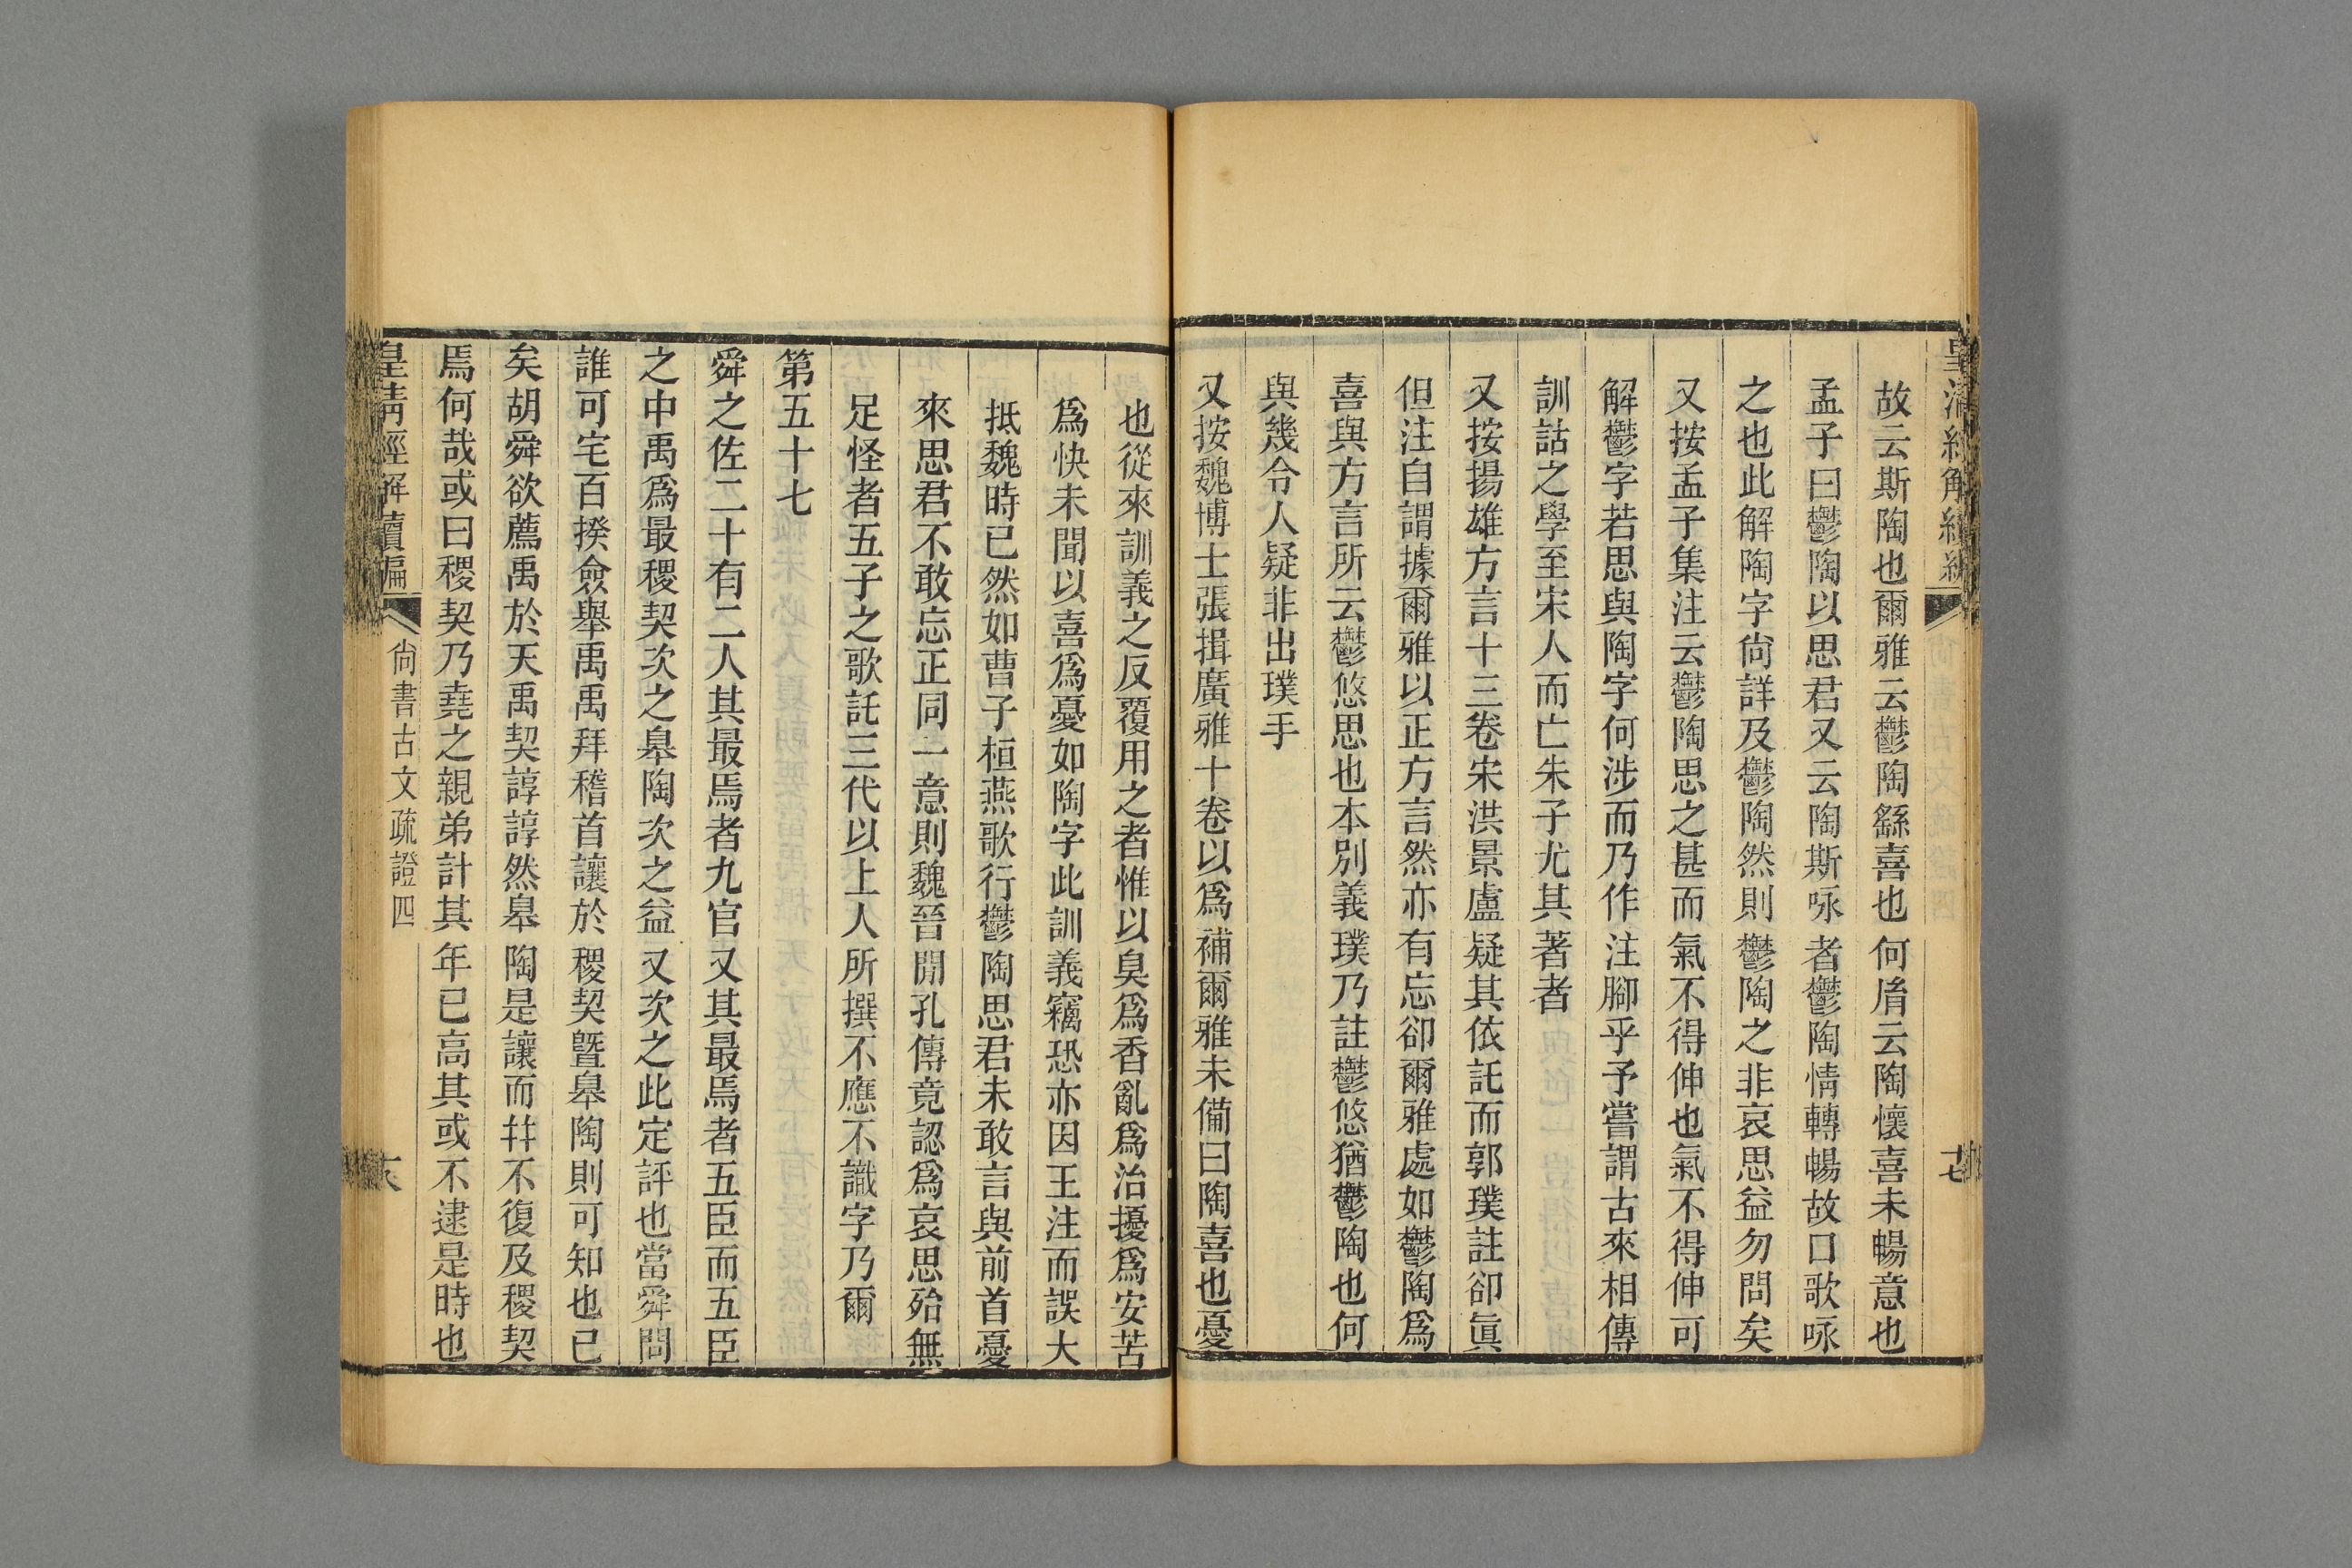 故云斯陶也爾雅云鬱陶繇喜也何胤云陶懷喜未暢意也
孟子曰鬱陶以思君又云陶斯咏者鬱陶情轉暢故口歌咏
之也此解陶字尙詳及鬱陶然則鬱陶之非哀思益勿問矣
又按孟子集注云鬱陶思之甚而氣不得伸也氣不得伸可
解鬱字若思與陶字何涉而乃作注腳乎予嘗謂古來相傳
訓詁之學至宋人而亡朱子尤其著者
又按揚雄方言十三卷宋洪景盧疑其依託而郭璞註卻眞
但注自謂據爾雅以正方言然亦有忘卻爾雅處如鬱陶爲
喜與方言所云鬱悠思也本別義璞乃註鬱悠猶鬱陶也何
與幾令人疑非出璞手
又按魏博士張揖廣雅十卷以爲補爾雅未備曰陶喜也憂
也從來訓義之反覆用之者惟以臭爲香亂爲治擾爲安苦
爲快未聞以喜爲憂如陶字此訓義竊恐亦因王注而誤大
抵魏時已然如曹子桓燕歌行鬱陶思君未敢言與前首憂
來思君不敢忘正同一意則魏晉閒孔傳竟認爲哀思殆無
足怪者五子之歌託三代以上人所撰不應不識字乃爾
第五十七
舜之佐二十有二人其最焉者九官又其最焉者五臣而五臣
之中禹爲最稷契次之皋陶次之益又次之此定評也當舜問
誰可宅百揆僉舉禹禹拜稽首讓於稷契曁皋陶則可知也已
矣胡舜欲薦禹於天禹契諄諄然皋陶是讓而幷不復及稷契
焉何哉或曰稷契乃堯之親弟計其年已高其或不逮是時也
皇淸經解續編
尙書古文疏證四